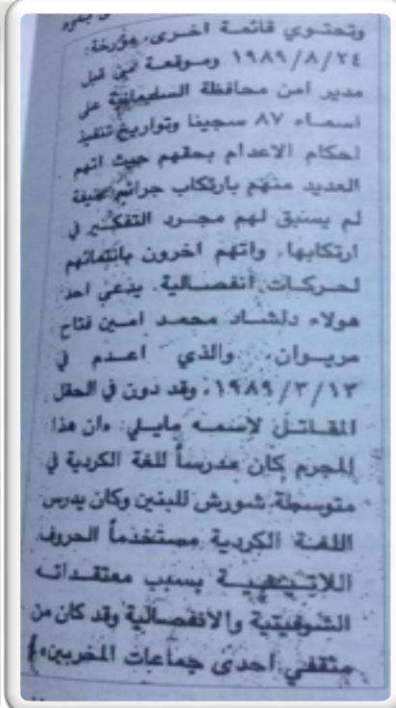 وتحتوي قائمة اخرى، مؤرخة:
١٩٨٩/٨/٢٤ وموقعة من قبل
مدير امن محافظة السليمانية على
اسماء ٨٧ سجينا وتواريخ تنفيذ
احكام الاعدام بحقهم حيث اتهم
العديد منهم بارتكاب جرائم
لم يسبق لهم مجرد التفكير في
ارتكابها. واتهم اخرون بانتمائهم
لحركات انفصالية. يدعى احد
هولاء دلشاد محمد امين فتاح
مريوان، والذي اعدم في
١٩٨٩/٣/١٣، وقد دون في الحقل
المقاتل لاسمه مايلي «ان هذا
المجرم كان مدرساً للغة الكردية في
متوسطة شورش للبنين وكان يدرس
اللغة الكردية مستخدماً الحروف
اللاتينية بسبب معتقداته
الشوفيتية والانفصالية وقد كان من
مثقفي احدى جماعات المخربين»